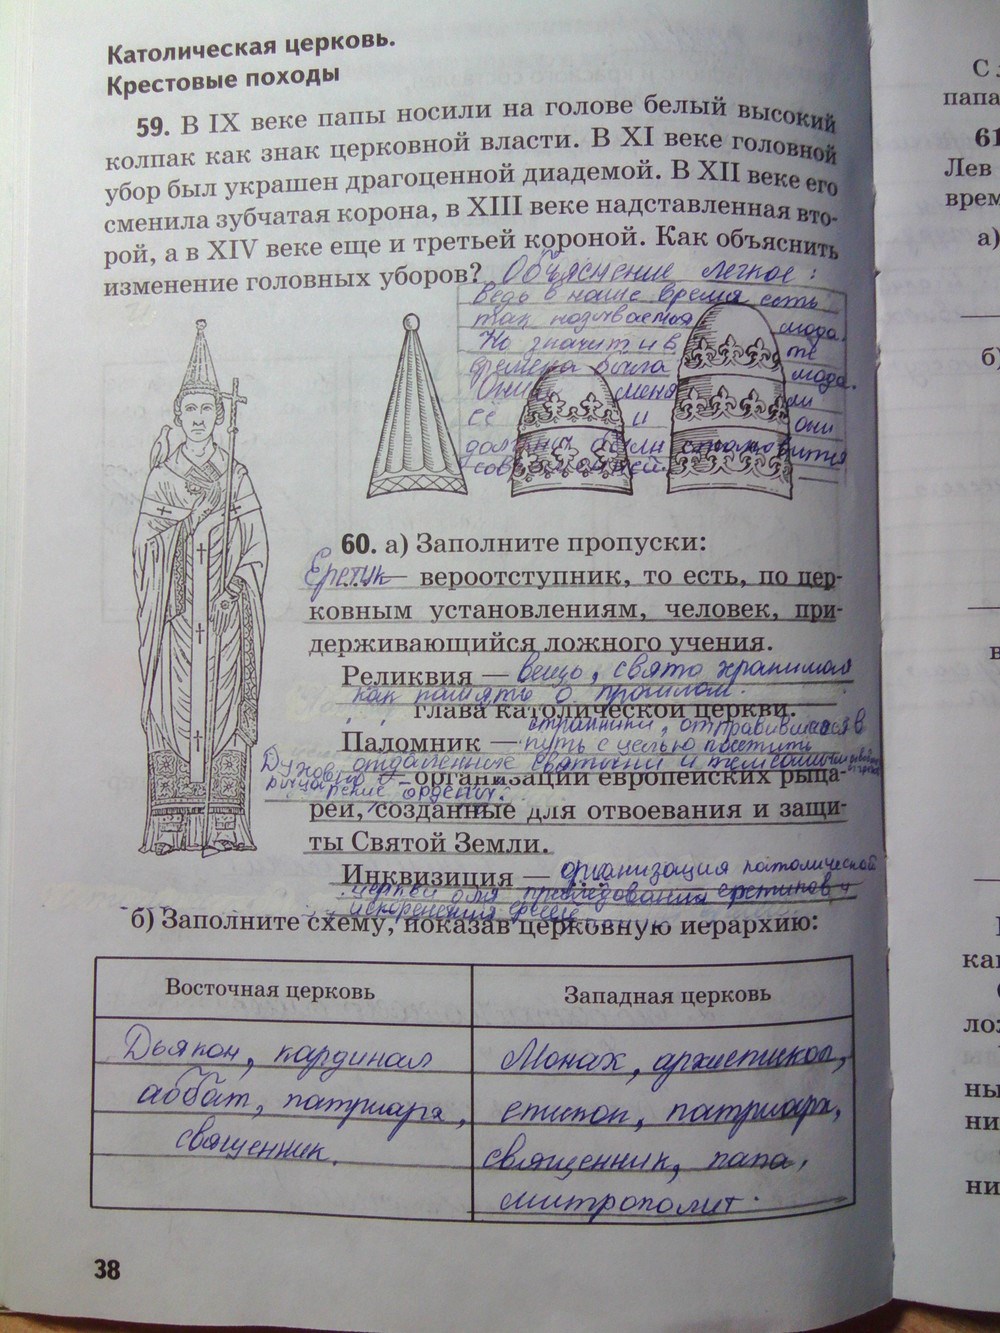 Католическая церковь.
Крестовые походы
59. В IX веке папы носили на голове белый высокий
колпак как знак церковной власти. В XI веке головной
убор был украшен драгоценной диадемой. В XII веке его
сменила зубчатая корона, в XIII веке надставленная вто-
рой, а в XIV веке еще и третьей короной. Как объяснить
изменение головных уборов? Объяснение легкое:
ведь в наше время есть
так называется мода.
Но значит и в те
времена была мода.
Они меняли
её и они
должны были
60. а) Заполните пропуски:
Еретик — вероотступник, то есть, по цер-
ковным установлениям, человек, при-
держивающийся ложного учения.
Реликвия — вещь, свято хранимая
как память о прошлом.
глава католической церкви.
странники, отправившиеся в
Паломник — путь с целью посетить
Духовно отдаленные святыни и тем самым
— организации европейских рыца-
рыцарские ордены.
рей, созданные для отвоевания и защи-
ты Святой Земли.
Инквизиция — организация католической
церкви для преследования еретиков и
искоренения ереси
б) Заполните схему, показав церковную иерархию:
Восточная церковь
Западная церковь
Дьякон, кардинал
аббат, патриарх,
священник.
Монах, архиепископ,
епископ, патриарх,
священник, папа,
митрополит.
38
С
папа
61
Лев
врем
а)
б)
в
ка
ны
ни
ни